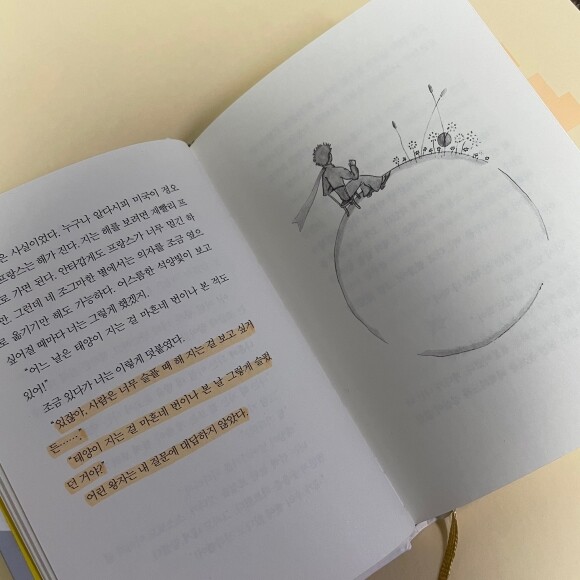 은 사실이었다. 누구나 알다시피 미국이 정오
프랑스는 해가 진다. 지는 해를 보려면 재빨리 프
로 가면 된다. 안타깝게도 프랑스가 너무 멀긴 하
만. 그런데 네 조그마한 별에서는 의자를 조금 옆으
로 옮기기만 해도 가능하다. 어스름한 석양빛이 보고
싶어질 때마다 너는 그렇게 했겠지.
“어느 날은 태양이 지는 걸 마흔네 번이나 본 적도
있어!”
조금 있다가 너는 이렇게 덧붙였다.
“있잖아, 사람은 너무 슬플 때 해 지는 걸 보고 싶거
든…….”
“태양이 지는 걸 마흔네 번이나 본 날 그렇게 슬펐
던 거야?”
어린 왕자는 내 질문에 대답하지 않았다.